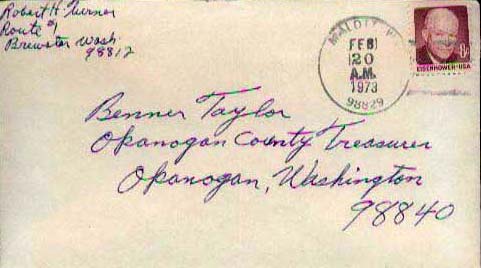 Robert H. Turner
Route #1
Brewster Wash
98812
MALOTT, W
FEB
20
A.M.
1973
98829
8¢
EISENHOWER·USA
Benner Taylor
Okanogan County Treasurer
Okanogan, Washington
98840